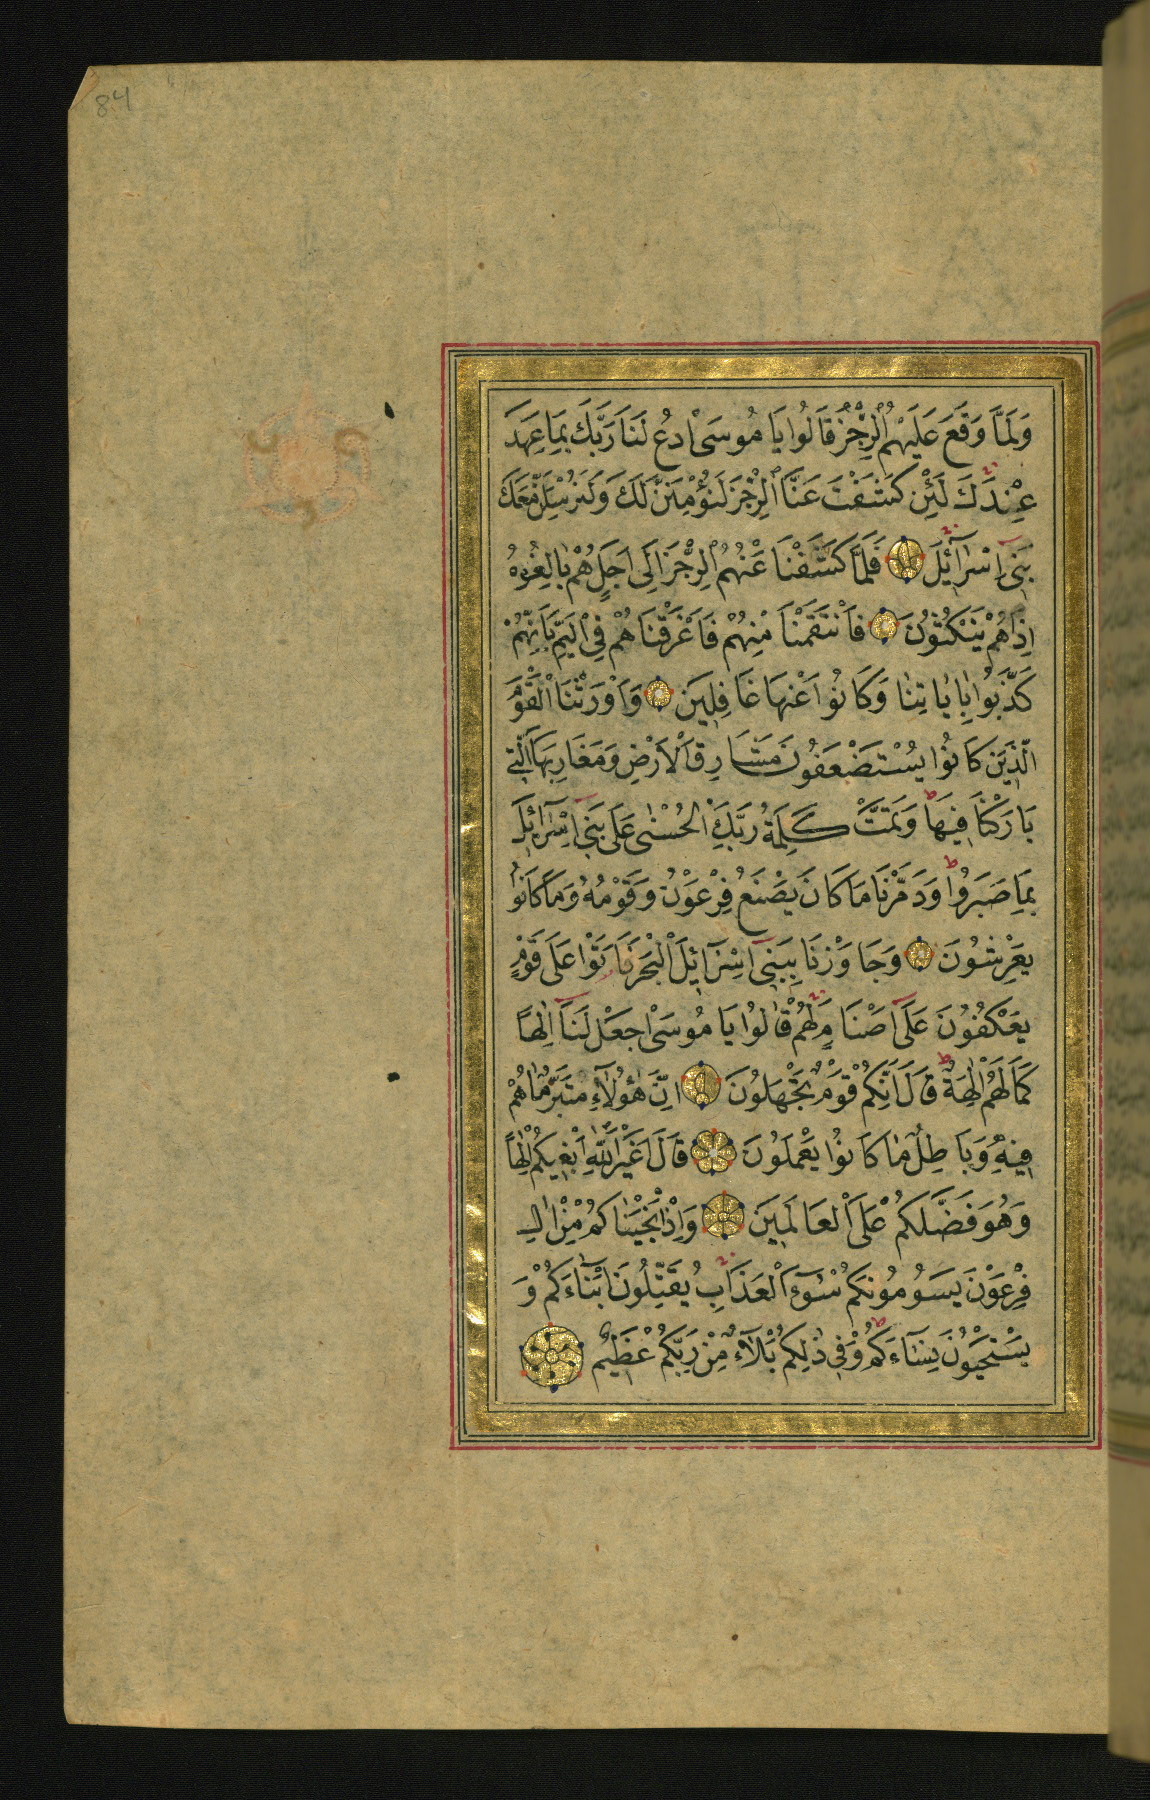 84
وَلَمَّا وَقَعَ عَلَيْهِمُ الرِّجْزُ قَالُوا يَا مُوسَى ادْعُ لَنَا رَبَّكَ بِمَا عَهِدَ
عِنْدَكَ لَئِنْ كَشَفْتَ عَنَّا الرِّجْزَ لَنُؤْمِنَنَّ لَكَ وَلَنُرْسِلَنَّ مَعَكَ
بَنِي اِسْرَآئِلَ فَلَمَّا كَشَفْنَا عَنْهُمُ الرِّجْزَ اِلَى اَجَلٍ هُمْ بَالِغُوهُ
اِذَا هُمْ يَنْكُثُونَ فَانْتَقَمْنَا مِنْهُمْ فَاَغْرَقْنَاهُمْ فِي الْيَمِّ بِاَنَّهُمْ
كَذَّبُوا بِاٰيَاتِنَا وَكَانُوا عَنْهَا غَافِلِينَ وَاَوْرَثْنَا الْقَوْمَ
الَّذِينَ كَانُوا يُسْتَضْعَفُونَ مَشَارِقَ الْاَرْضِ وَمَغَارِبَهَا الَّتِي
بَارَكْنَا فِيهَا ط وَتَمَّتْ كَلِمَةُ رَبِّكَ الْحُسْنٰى عَلَى بَنِي اِسْرَآئِلَ
بِمَا صَبَرُوا ط وَدَمَّرْنَا مَا كَانَ يَصْنَعُ فِرْعَوْنُ وَقَوْمُهُ وَمَا كَانُوا
يَعْرِشُونَ وَجَاوَزْنَا بِبَنِي اِسْرَآئِلَ الْبَحْرَ فَاَتَوْا عَلَى قَوْمٍ
يَعْكُفُونَ عَلَى اَصْنَامٍ لَهُمْ قَالُوا يَا مُوسَى اجْعَلْ لَنَا اِلٰهًا
كَمَا لَهُمْ اٰلِهَةٌ ط قَالَ اِنَّكُمْ قَوْمٌ تَجْهَلُونَ اِنَّ هٰؤُلَاءِ مُتَبَّرٌ مَا هُمْ
فِيهِ وَبَاطِلٌ مَا كَانُوا يَعْمَلُونَ قَالَ اَغَيْرَ اللّٰهِ اَبْغِيكُمْ اِلٰهًا
وَهُوَ فَضَّلَكُمْ عَلَى الْعَالَمِينَ وَاِذْ اَنْجَيْنَاكُمْ مِنْ اٰلِ
فِرْعَوْنَ يَسُومُونَكُمْ سُوٓءَ الْعَذَابِ يُقَتِّلُونَ اَبْنَاءَكُمْ وَ
يَسْتَحْيُونَ نِسَاءَكُمْ ط وَفِي ذٰلِكُمْ بَلَاءٌ مِنْ رَبِّكُمْ عَظِيمٌ